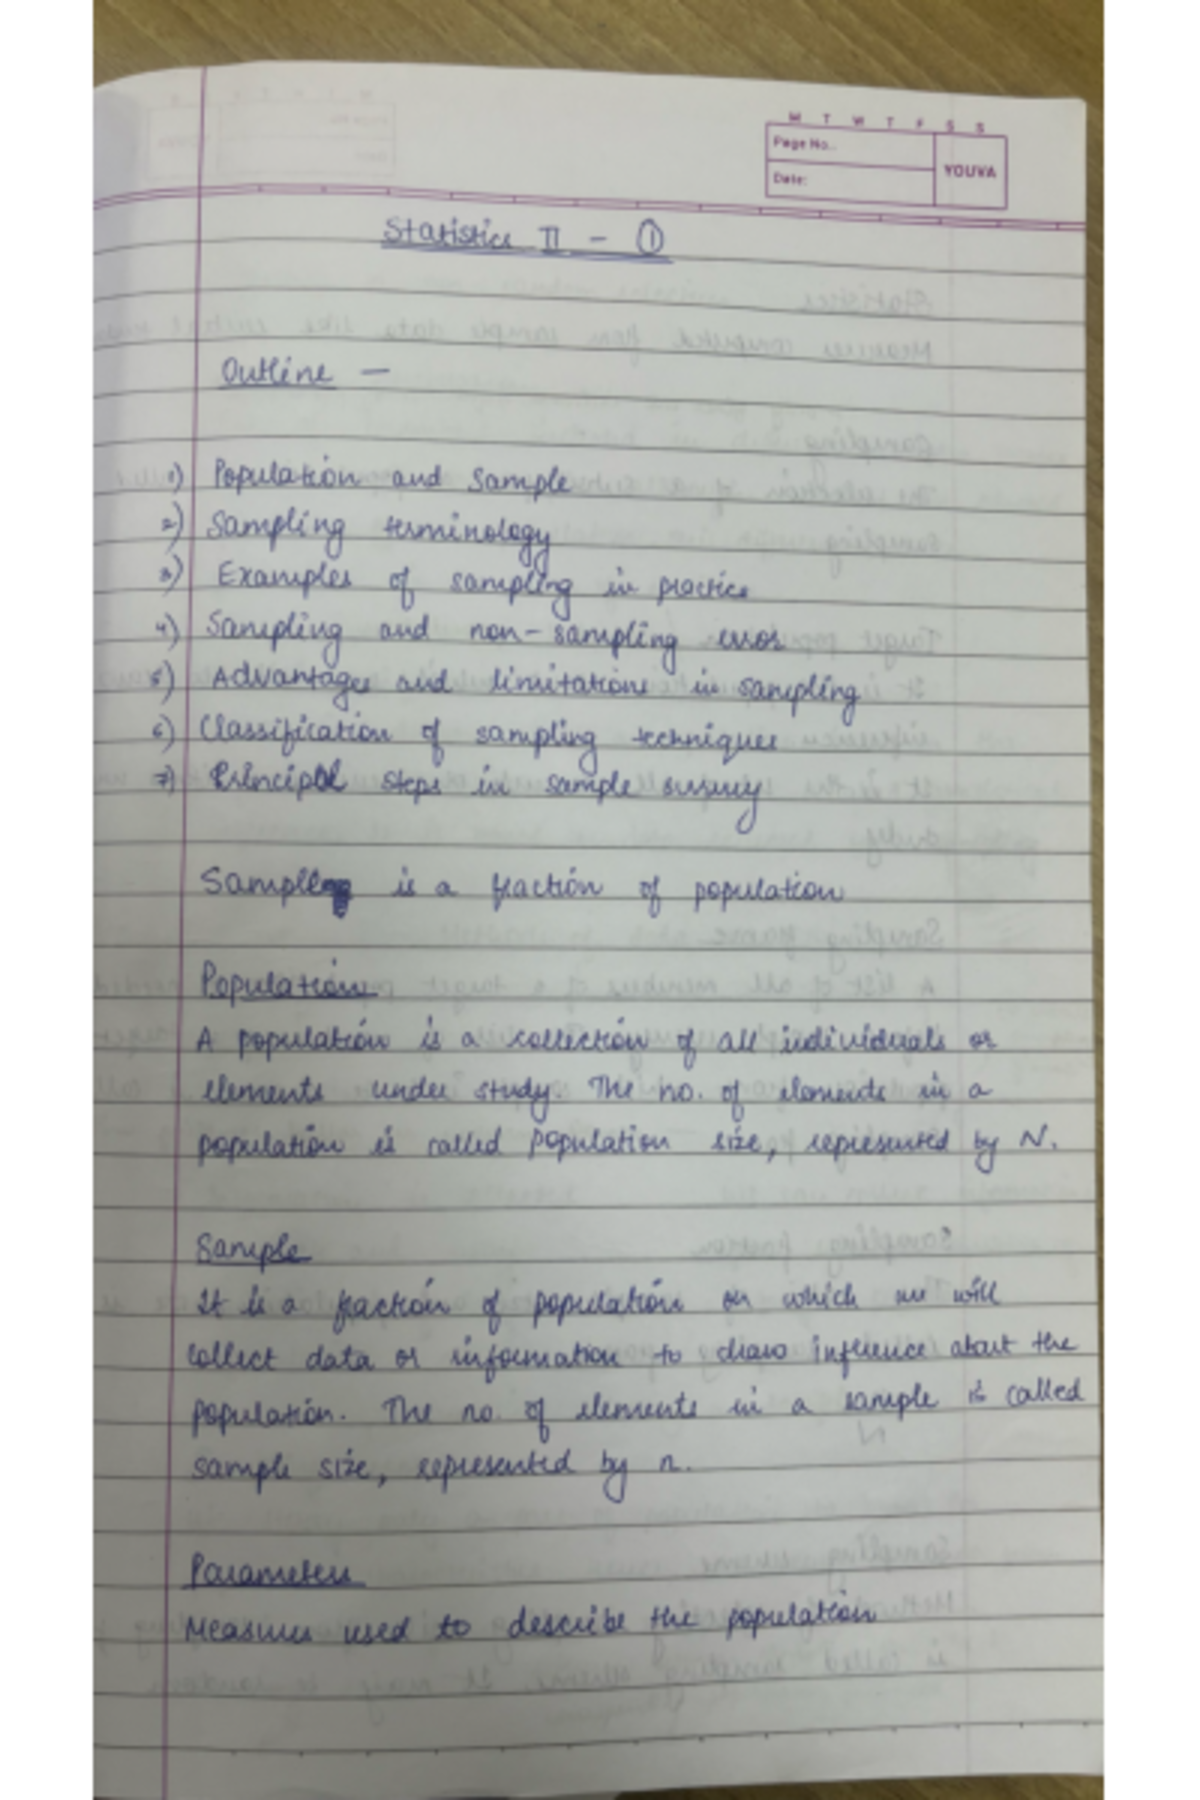 M T W T F S S
Page No..
YOUVA
Date:
Statistics II - ①
Outline —
1) Population and Sample
2) Sampling terminology
3) Examples of sampling in practice
4) Sampling and non-sampling error
5) Advantages and limitations in sampling
6) Classification of sampling techniques
7) Principal steps in sample survey
Sample is a fraction of population
Population
A population is a collection of all individuals or
elements under study. The no. of elements in a
population is called population size, represented by N.
Sample
It is a fraction of population on which we will
collect data or information to draw influence about the
population. The no. of elements in a sample is called
sample size, represented by n.
Parameters
Measures used to describe the population